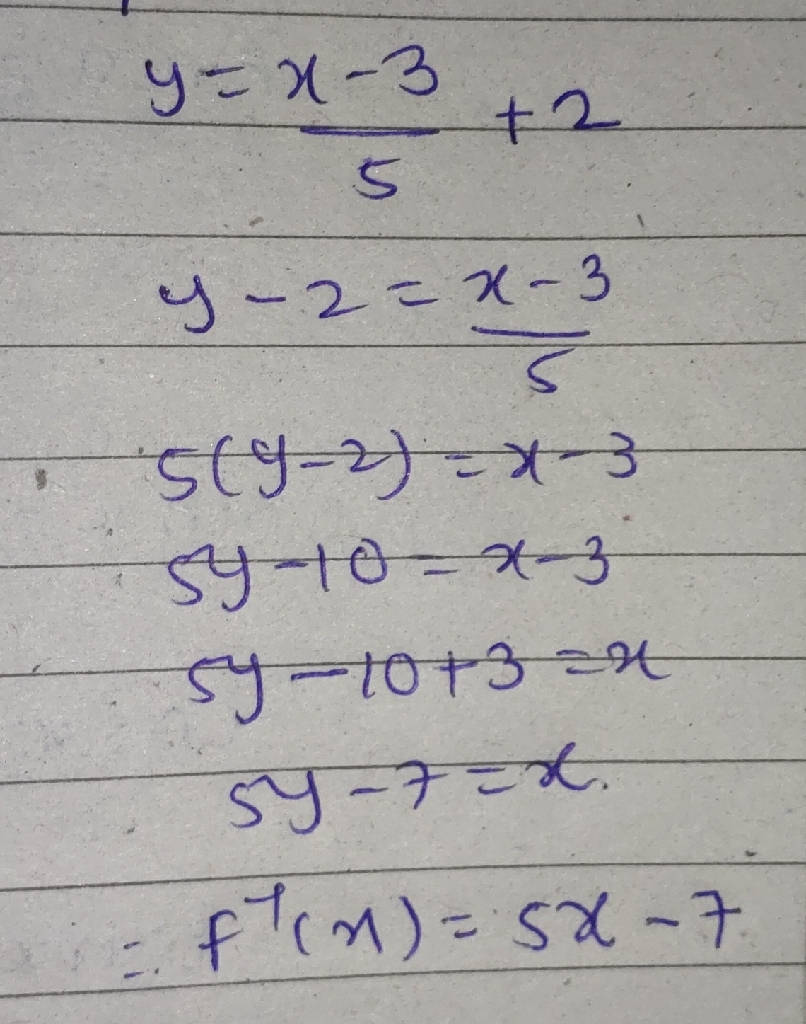 y = x - 3 + 2
5
y - 2 = x - 3
5
5(y-2) = x-3
5y - 10 = x-3
5y - 10 + 3 = x
5y - 7 = x.
∴ f⁻¹(x) = 5x - 7